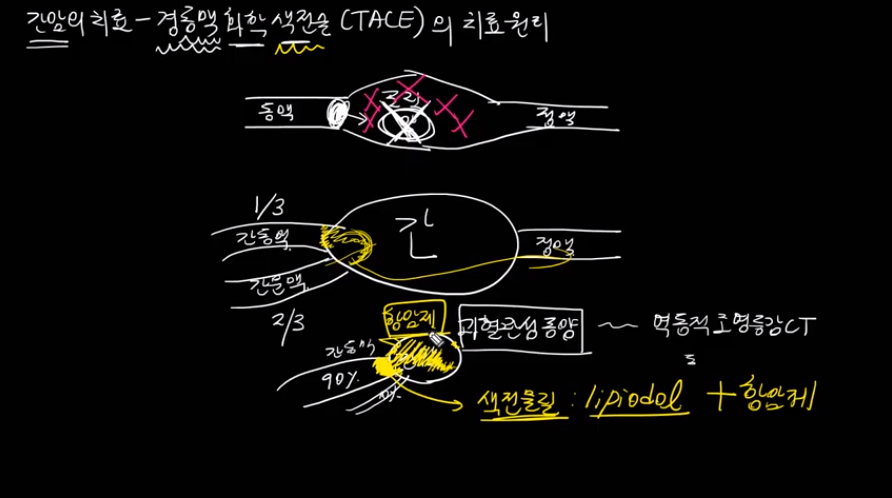 간암의 치료 - 경동맥 화학 색전술 (TACE) 의 치료원리
동맥
조직
정맥
1/3
간동맥
간
정맥
간문맥
2/3
항암제
과혈관성 종양 ~ 역동적 조영증강 CT
간동맥
90%
색전물질 : lipiodol + 항암제